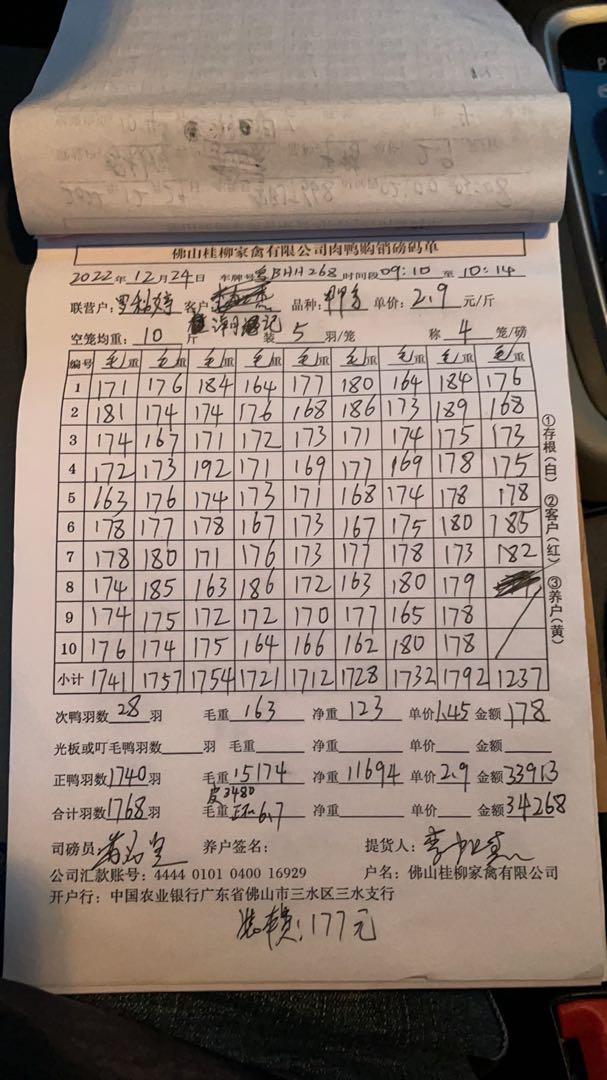 佛山桂柳家禽有限公司肉鸭购销磅码单
2022年12月24日 车牌号 BHH268 时间段09:10 至 10:14
联营户: 罗 客户 品种: 单价: 2.9 元/斤
空笼均重: 10 斤 装 5 羽/笼 称 4 笼/磅
编号 毛重 毛重 毛重 毛重 毛重 毛重 毛重 毛重 毛重
1 171 176 184 164 177 180 164 184 176
2 181 174 174 176 168 186 173 189 168
3 174 167 171 172 173 171 174 175 173
4 172 173 192 171 169 177 169 178 175
5 163 176 174 173 171 168 174 178 178
6 178 177 178 167 173 167 175 180 185
7 178 180 171 176 173 177 178 173 182
8 174 185 163 186 172 163 180 179
9 174 175 172 172 170 177 165 178
10 176 174 175 164 166 162 180 178
小计 1741 1757 1754 1721 1712 1728 1732 1792 1237
①存根(白) ②客户(红) ③养户(黄)
次鸭羽数 28 羽 毛重 163 净重 123 单价 1.45 金额 178
光板或叮毛鸭羽数 羽 毛重 净重 单价 金额
正鸭羽数 1740 羽 毛重 15174 净重 11694 单价 2.9 金额 33913
皮3480
合计羽数 1768 羽 毛重 6.7 净重 单价 金额 34268
司磅员: 养户签名: 提货人: 李
公司汇款账号: 4444 0101 0400 16929 户名: 佛山桂柳家禽有限公司
开户行: 中国农业银行广东省佛山市三水区三水支行
装车费: 177元